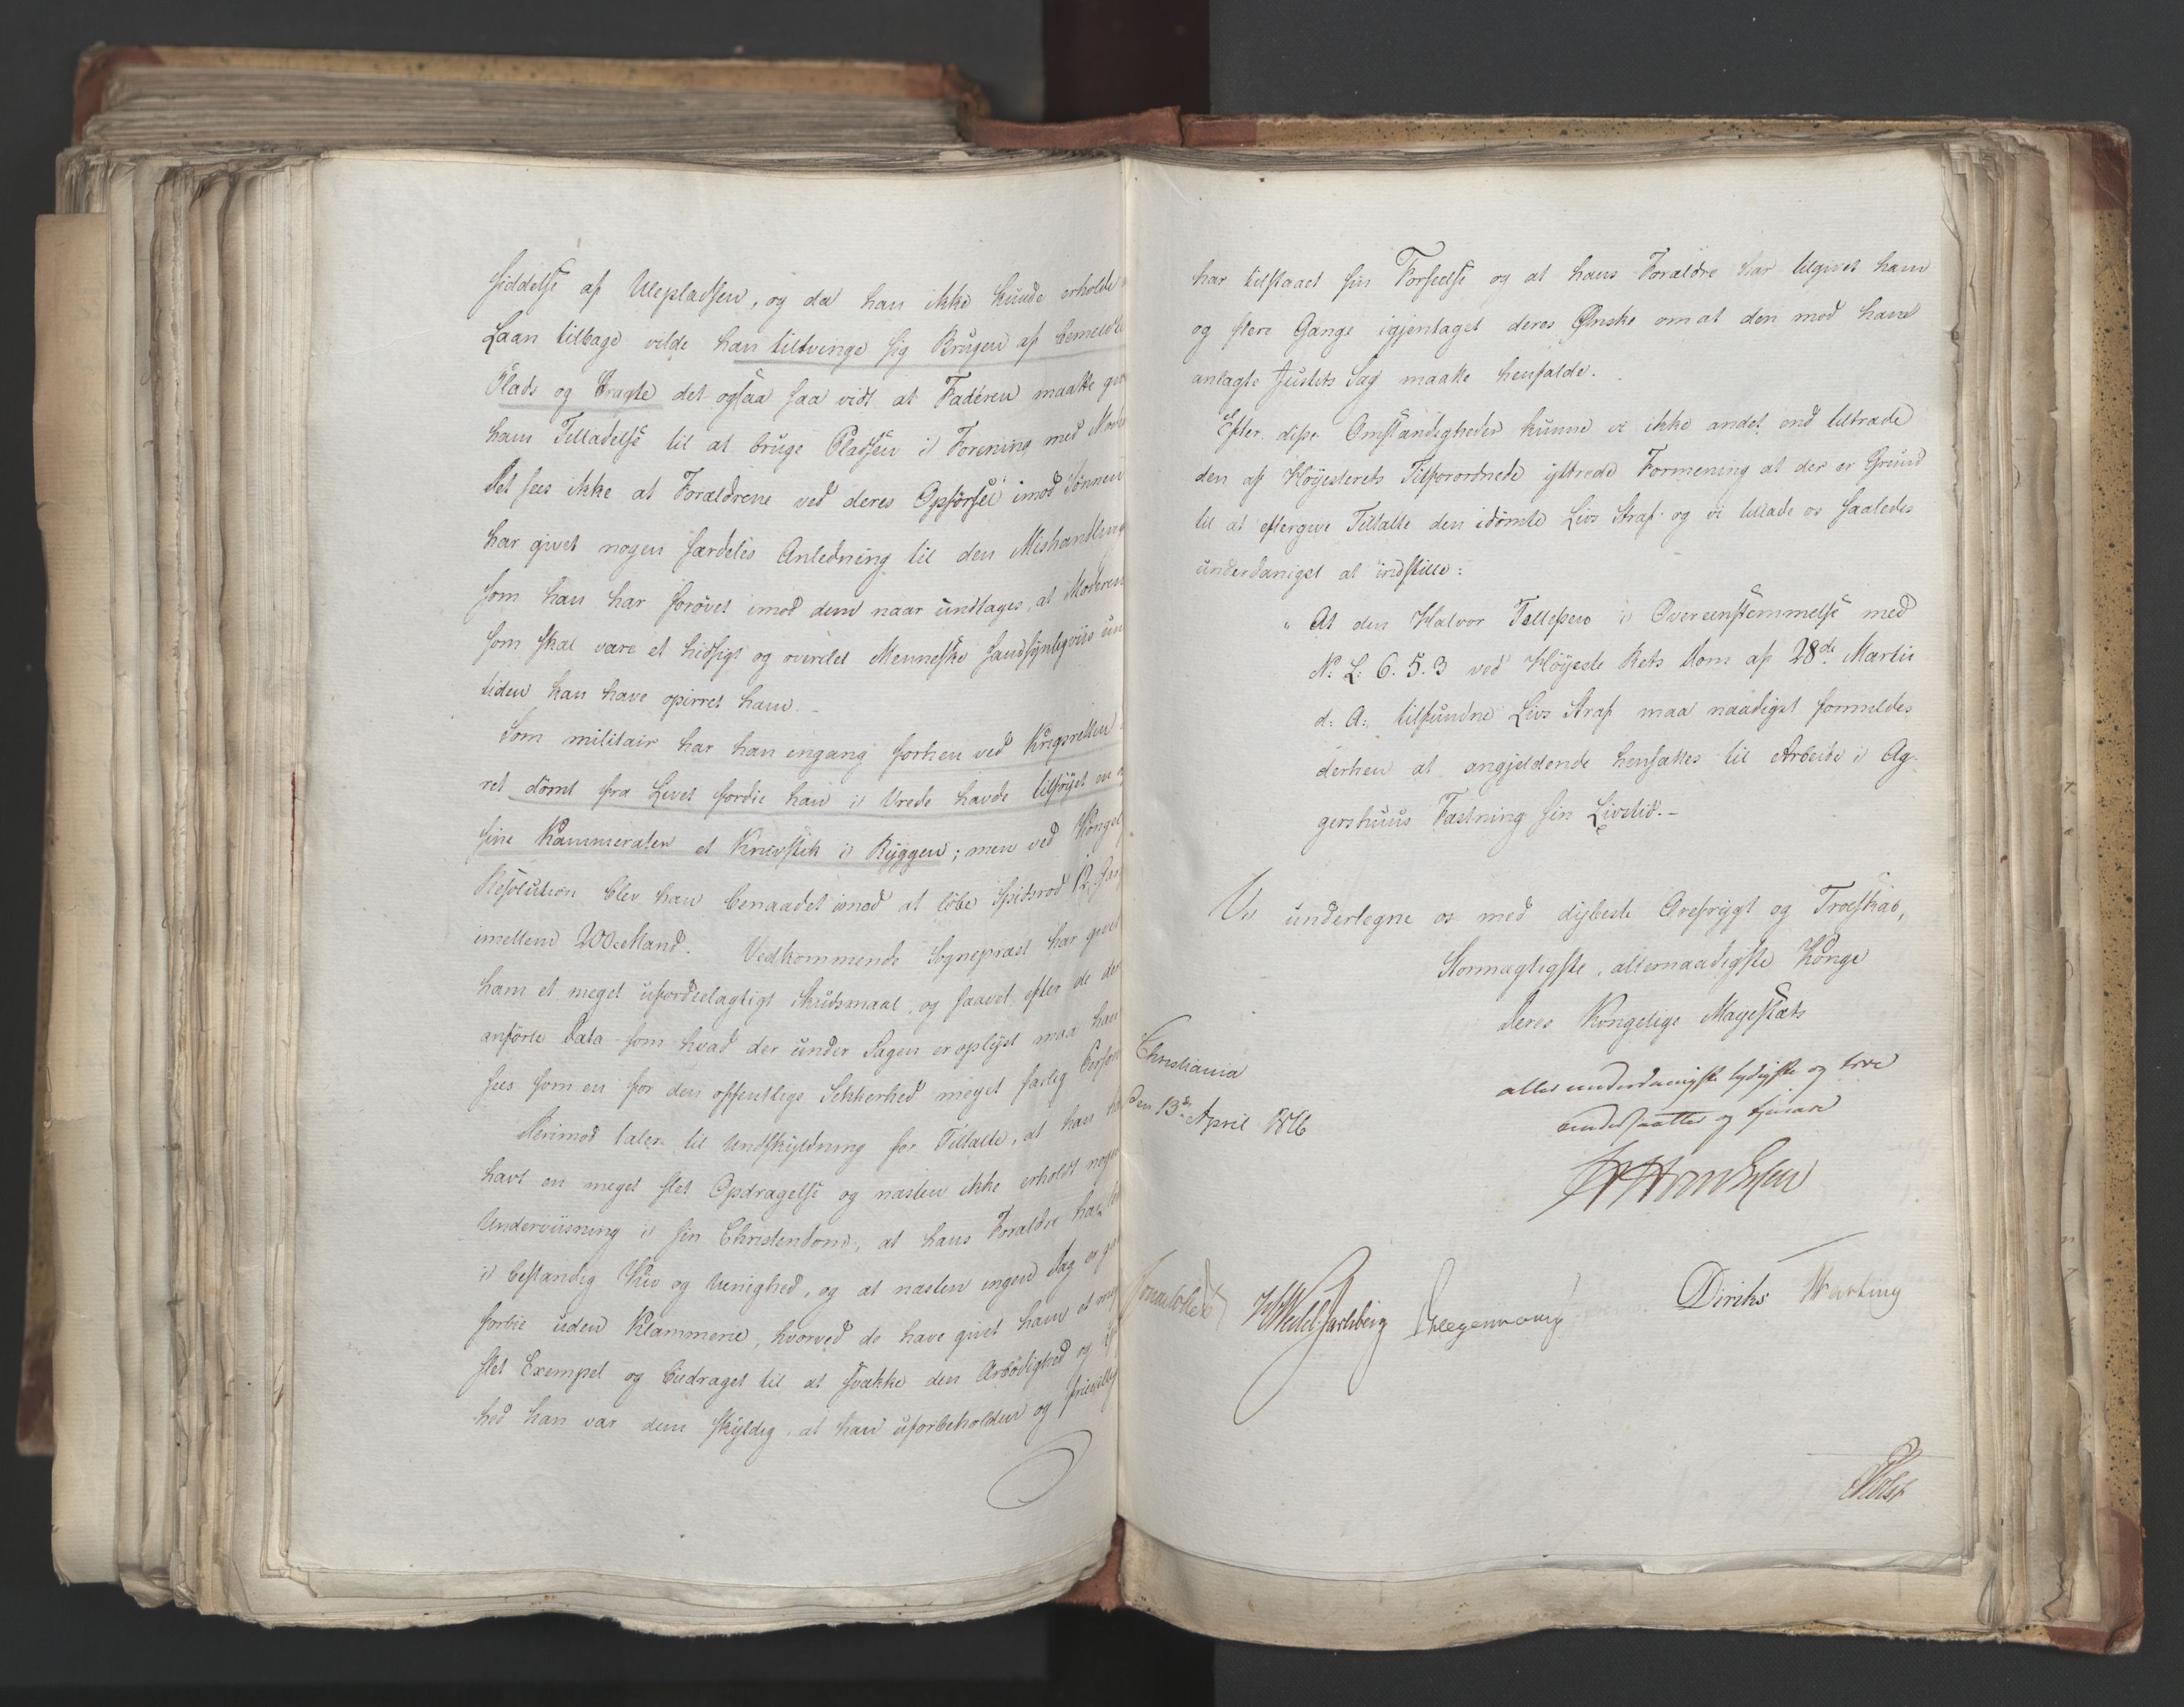 siddelse af Ulepladsen, og da han ikke kunde erholde
Laan tilbage vilde han tiltvinge sig Brugen af bemeldte
Plads og bragte det ogsaa saa vidt at Faderen maatte give
ham Tilladelse til at bruge Pladsen i Forening med Mode
Det sees ikke at Forældrene ved deres Opförsel imod Sönnen
har givet nogen særdeles Anledning til den Mishandling
som han har forövet imod dem naar undtages, at Moderen
som skal være et hidsigt og overilet Menneske sandsynligviis un
tiden kan have opirret ham.
Som militair har han engang forhen ved Krigsretten
ret dömt fra Livet fordi han i Vrede havde tilföyet en
sine Kammerater et Knivstik i Ryggen; men ved Kongel
Resolution blev han benaadet imod at löbe Spidsrod 12 Gan
imellem 200 Mand. Vedkommende Sognepræst har givet
ham et meget ufordeelagtigt Skudsmaal, og saavel efter de der
anförte Data som hvad der under Sagen er oplyst maa han
sees som en for den offentlige Sikkerhed meget farlig Person
Derimod taler til Undskyldning for Tiltalte, at han
havt en meget slet Opdragelse og næsten ikke erholdt nogen
Underviisning i sin Christendom, at hans Forældre har
i bestandig Kiv og Uenighed, og at næsten ingen Dag er
forbie uden Klammerie, hvorved de have givet ham et
slet Exempel og bidraget til at svække den Ærbödighed og
hed han var dem skyldig, at han uforbeholden og frievillig
har tilstaaet sin Forseelse og at hans Forældre har tilgivet ham
og flere Gange igjentaget deres Ønske om at den mod ham
anlagte Justits Sag maatte henfalde.
Efter disse Omstændigheder kunne vi ikke andet end tiltræde
den af Höyesterets Tilforordnede yttrede Formening at der er Grund
til at eftergive Tiltalte den idömte Livs Straf og vi tillade os saaledes
underdanigst at indstille:
"At den Halvor Tellefsen i Overeenstemmelse med
N: L: 6. 5. 3 ved Höyeste Rets Dom af 28de Martii
d: A: tilfundne Livs Straf maa naadigst formildes
derhen at angjeldende hensættes til Arbeide i Ag-
gershuus Fæstning sin Livstid.-
Vi undertegne os med dybeste Ærefrygt og Troeskab,
Stormægtigste, allernaadigste Konge
Deres Kongelige Majestæts
Christiania
den 13de April 1816
allerunderdanigste lydigste og troe
undersaatter og tjenere
Sommerhielm
JHWedel Jarlsberg
Diriks
Motzfeldt
Holst